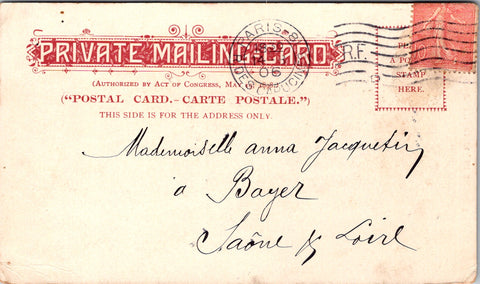 PARIS 8
06
DES CAPUCINES
R.F.
PRIVATE MAILING CARD
(Authorized by Act of Congress, May
("POSTAL CARD.-CARTE POSTALE.")
THIS SIDE IS FOR THE ADDRESS ONLY.
A PO
STAMP
HERE.
Mademoiselle anna Jacquetin
à Boyer
Saône & Loire